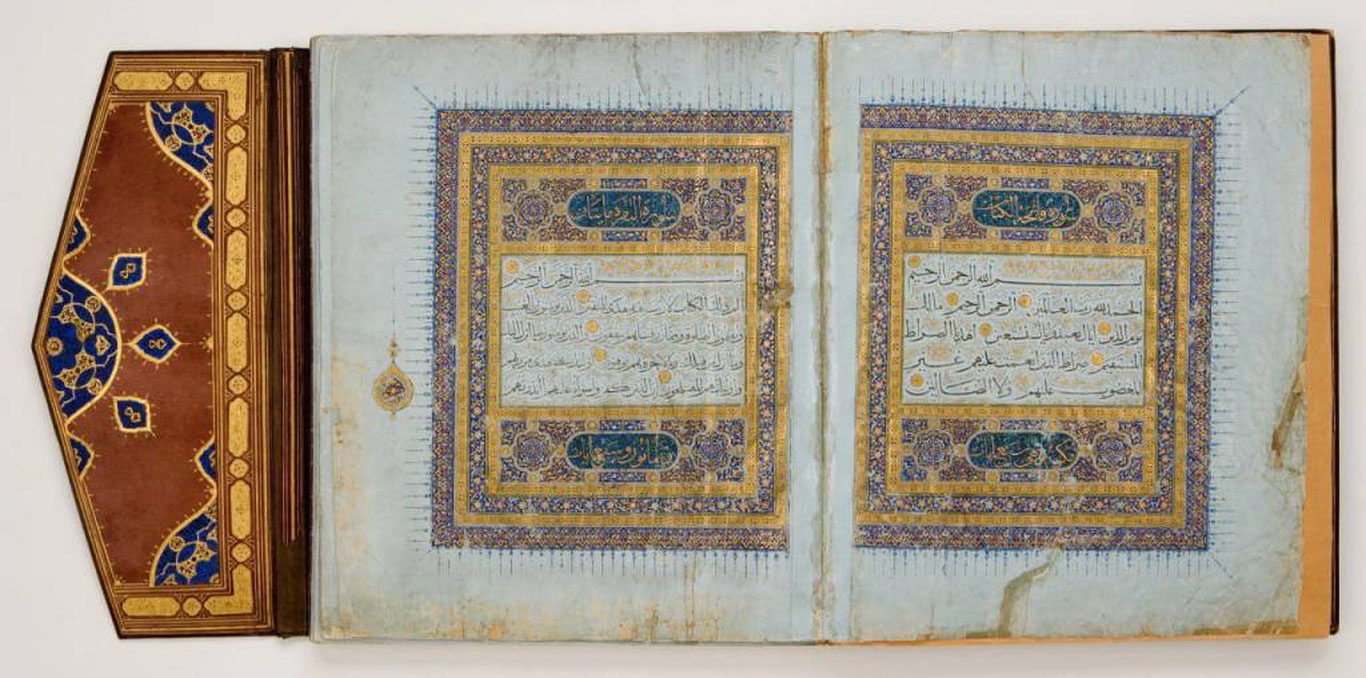 سورة فاتحة الكتاب
بسم الله الرحمن الرحيم
الحمد لله رب العالمين الرحمن الرحيم مالك
يوم الدين اياك نعبد واياك نستعين اهدنا الصراط
المستقيم صراط الذين انعمت عليهم غير
المغضوب عليهم ولا الضالين
وهي سبع ايات
سورة البقرة مائتان
بسم الله الرحمن الرحيم
الم ذلك الكتاب لا ريب فيه هدى للمتقين الذين يؤمنون بالغيب
ويقيمون الصلوة ومما رزقناهم ينفقون والذين يؤمنون بما انزل اليك
وما انزل من قبلك وبالاخرة هم يوقنون اولئك على هدى من ربهم
واولئك هم المفلحون ان الذين كفروا سواء عليهم ءانذرتهم
وثمانون وسبع ايات